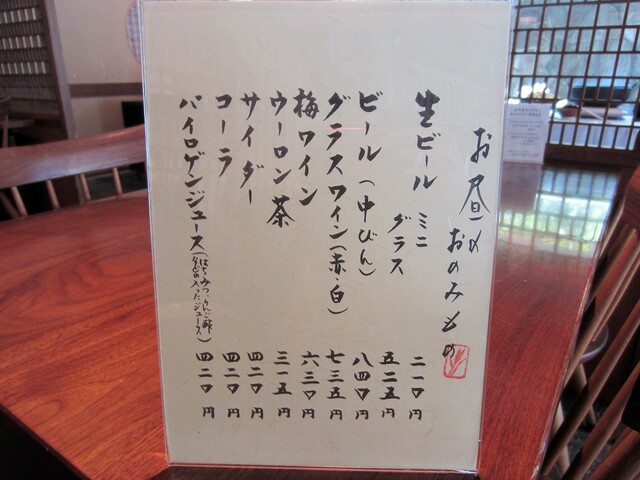 お昼の
おのみもの
生ビール ミニ 二一〇円
グラス 五二五円
ビール(中びん) 八四〇円
グラスワイン(赤・白) 七三五円
梅ワイン 六三〇円
ウーロン茶 三一五円
サイダー 四二〇円
コーラ 四二〇円
パイロゲンジュース(はちみつ・りんご酢などの入ったジュース) 四二〇円